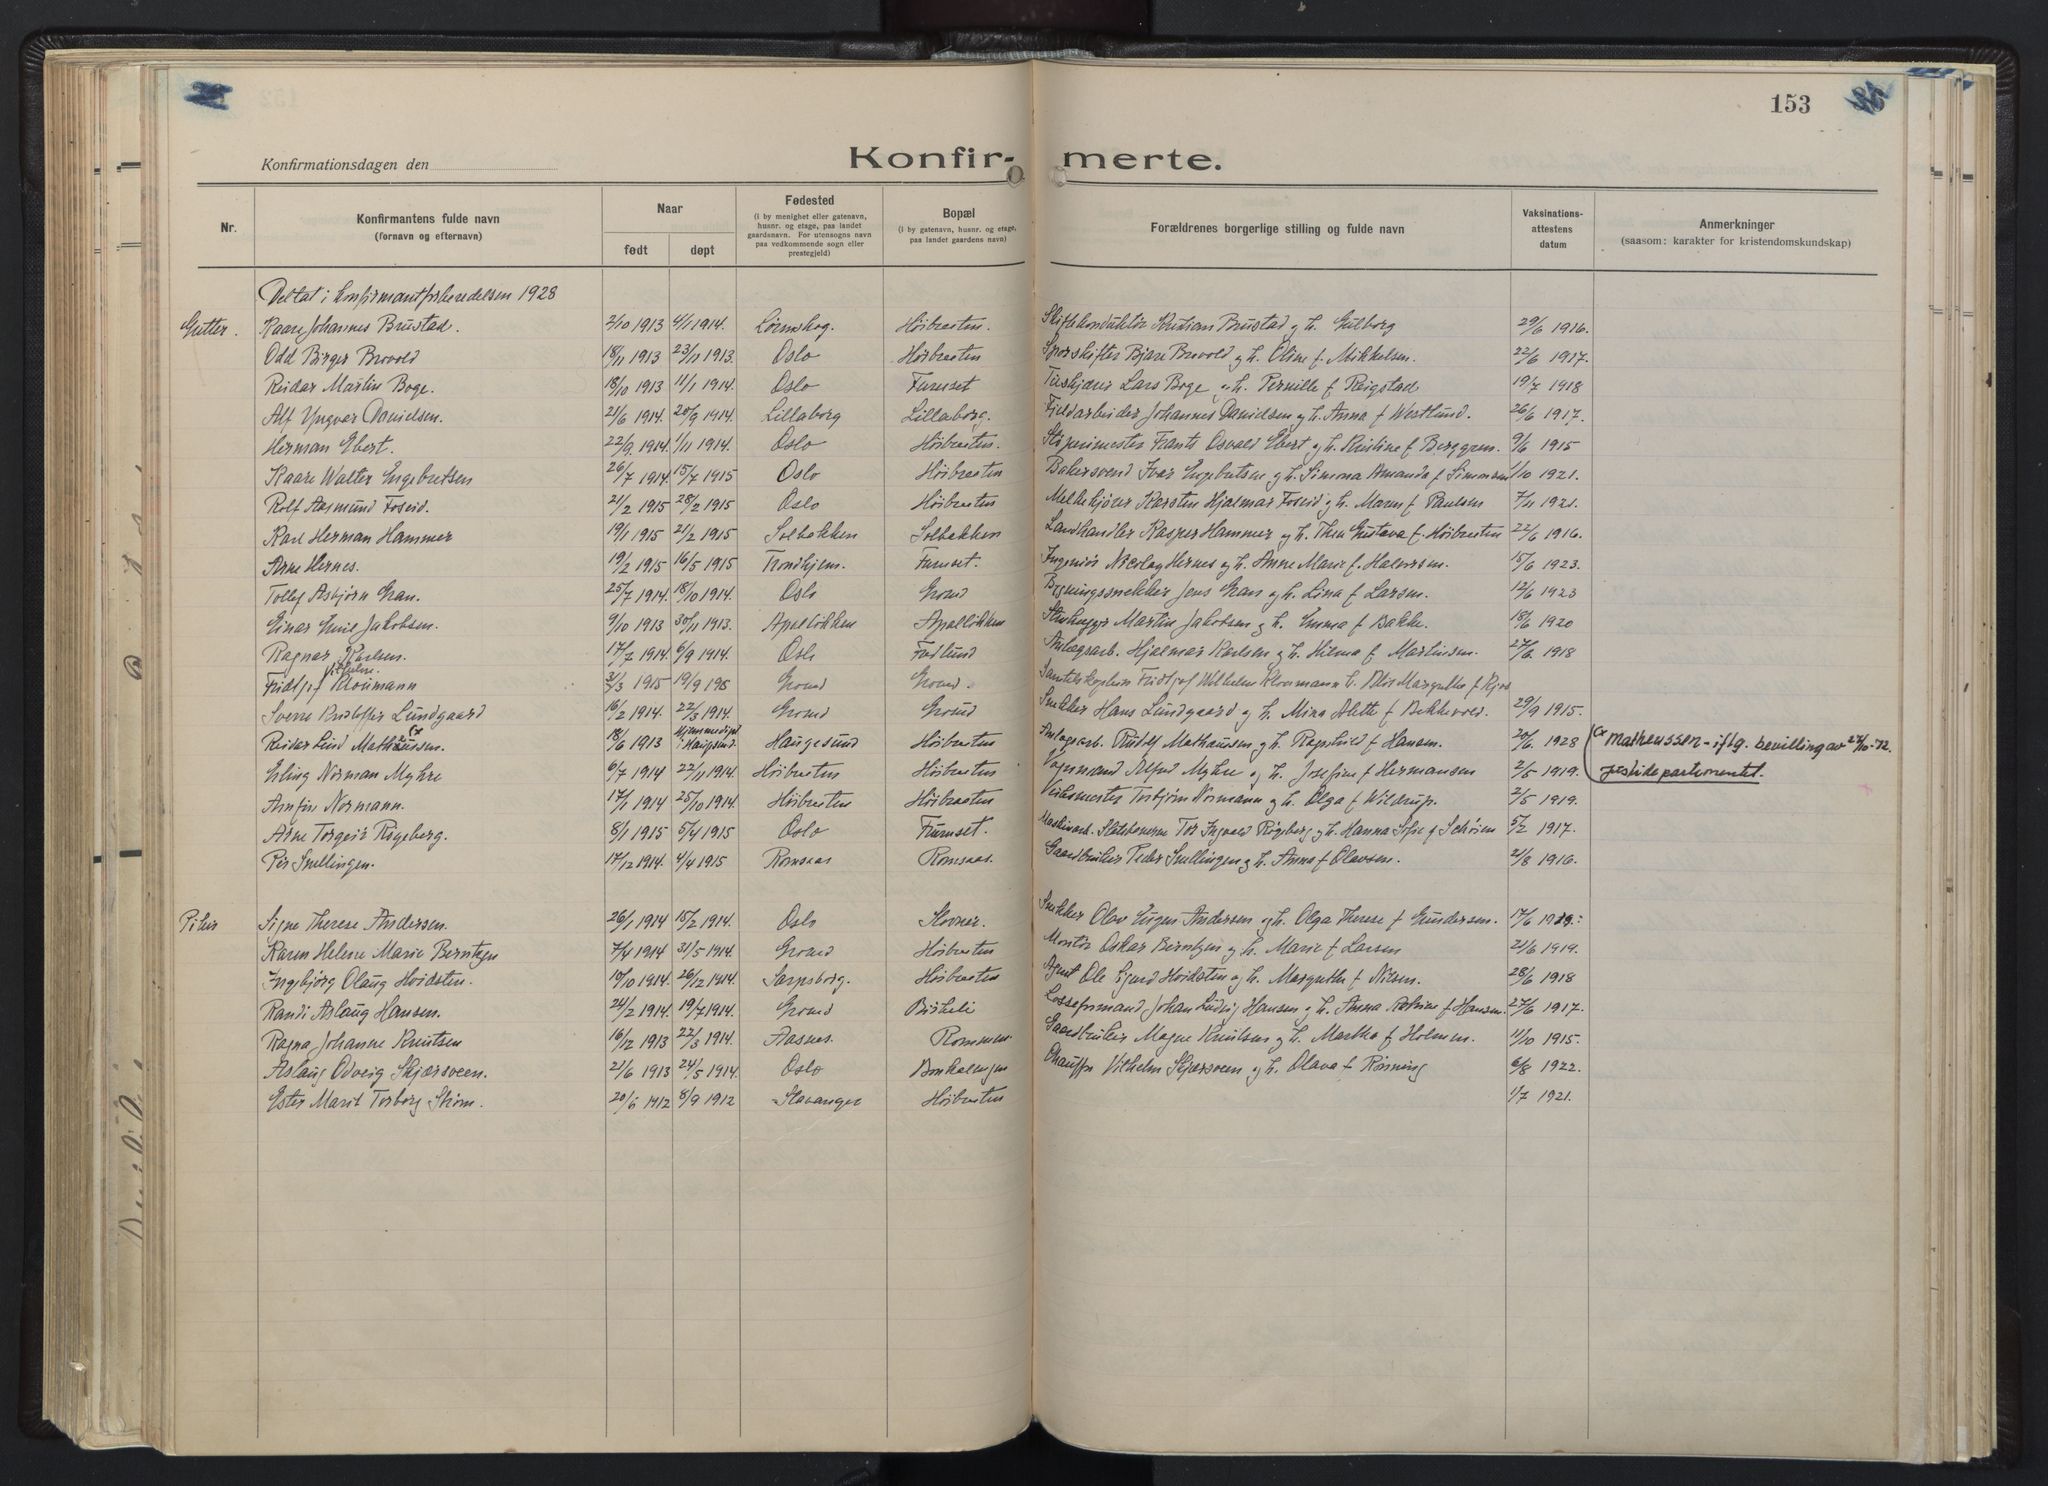 153
Konfirmationsdagen den
Konfir- merte.
Nr.
Konfirmantens fulde navn
(fornavn og efternavn)
Naar
født døpt
Fødested
(i by menighet eller gatenavn,
husnr. og etage, paa landet
gaardsnavn. For utensogns navn
paa vedkommende sogn eller
prestegjeld)
Bopæl
(i by gatenavn, husnr. og etage,
paa landet gaardens navn)
Forældrenes borgerlige stilling og fulde navn
Vaksinations-
attestens
datum
Anmerkninger
(saasom: karakter for kristendomskundskap)
Deltat i konfirmantforberedelsen 1928
Gutter. Kaare Johannes Brustad. 2/10 1913 4/1 1914. Lørenskog. Høibraaten. Kristian Brustad og h. Gulborg 29/6 1916.
Odd Birger Brovold 18/11 1913 23/11 1913. Oslo Høibraaten Sporskifter Bjare Brovold og h. Oline f. Mikkelsen. 22/6 1917.
Reidar Martin Boge. 18/10 1913 11/1 1914. Oslo Furuset Lars Boge og h. Pernille f Reigstad 19/7 1918
Alf Yngvar Danielsen. 21/6 1914. 20/9 1914. Lillaborg Lillaborg. Johannes Danielsen og h. Anna f Westlund. 26/6 1917.
Herman Ebert. 22/9. 1914. 1/11 1914. Oslo Høibraaten. Frants Osvald Ebert og h. Kristine f Berggren. 9/6 1915
Kaare Walter Engebretsen 26/7 1914. 15/7 1915 Oslo Høibraaten Bakersvend Ivar Engebretsen og h. Simona Amanda f Simonsen 1/10 1921.
Rolf Aasmund Foseid. 21/2 1915 28/2 1915 Oslo Høibraaten Melkekjører Karsten Hjalmar Foseid og h. Maren f Paulsen 7/11 1921.
Karl Herman Hammer 19/1 1915 21/2 1915 Solbakken Solbakken Landhandler Kasper Hammer og h. Thea Gustava f. Høibraaten 22/6 1916.
Arne Hernes. 19/2 1915 16/5 1915 Trondhjem. Furuset. Ingeniør Nicolay Hernes og h. Anne Marie f. Halvorsen. 15/6 1923.
Tollef Asbjørn Gran. 25/7 1914. 18/10 1914. Oslo Grorud Bygningssnekker Jens Gran og h. Lina f Larsen. 12/6 1923
Einar Emil Jakobsen. 9/10 1913 30/11 1913. Apalløkken Apalløkken Stenhugger Martin Jakobsen og h. Emma f Bakke. 18/6 1920
Ragnar Karlsen. 17/7 1914. 6/9 1914. Oslo Anlægsarb. Hjalmar Karlsen og h. Hilma f Martinsen. 27/6. 1918
Vilhelm
Fridtjof Kloumann 31/3 1915 19/9 195 Grorud Grorud. Fridtjof Wilhelm Kloumann h. Margrethe f
Sverre Lundgaard 16/2 1914. 22/3 1914. Grorud Grorud Snekker Hans Lundgaard og h. Mina Alette f Bekkevold. 29/9 1915.
Reidar Lind Mathaussen. 18/6 1913 hjemmedøpt i Haugesund. Haugesund Høibraaten Anlægsarb. Rudolf Mathaussen og h. Ragnhild f Hansen. 20/6. 1928 Matheussen - iflg. bevilling av 27/10-72.
Justisdepartementet.
Erling Norman Myhre 6/7 1914 22/11 1914. Høibraaten Høibraaten Vognmand Alfred Myhre og h. Josefine f Hermansen 2/5 1919.
Arnfin Normann. 17/1 1914 25/10 1914. Høibraaten Høibraaten Torbjørn Normann og h. Olga f Wildrup. 2/5 1919.
Arne Torgeir Rogeberg. 8/1 1915 5/4 1915 Oslo Furuset. Maskinarb. Statsbanerne Tor Ingvald Rogeberg og h. Hanna Sofie f Schøien 5/2 1917.
Per Snellingen. 17/12 1914. 4/4 1915 Romsaas Romsaas. Gaardbruker Peder Snellingen og h. Anna f Olavsen. 2/8 1916.
Piker Signe Therese Andersen. 26/1 1914 15/2 1914. Oslo Stovner. Snekker Olav Eugen Andersen og h. Olga Therese f Gundersen. 17/6 1919.
Karen Helene Marie Berntzen 7/4 1914 31/5 1914. Grorud Høibraaten Montør Oskar Berntzen og h. Marie f Larsen 21/6 1919.
Ingebjørg Olaug Hvidsten. 10/10 1914. 26/12 1914. Sarpsborg. Høibraaten Agent Ole Sigurd Hvidsten og h. Margrethe f Nilsen. 28/6 1918
Randi Aslaug Hansen. 24/2 1914. 19/7 1914. Grorud Birkeli Losseformand Johan Ludvig Hansen og h. Anna f Hansen. 27/6 1917.
Ragna Johanne Knutsen 16/12 1913 22/3 1914. Aasnes. Rommen. Gaardbruker Magne Knutsen og h. Martha f Holmen. 11/10 1915.
Aslaug Odveig Skjærsveen. 21/6 1913 24/5 1914. Oslo Chauffør Vilhelm Skjærsveen og h. Olava f Rønning 6/8 1922.
Ester Marit Torborg Strøm. 20/6 1912 8/9 1912 Stavanger Høibraaten 1/7 1921.